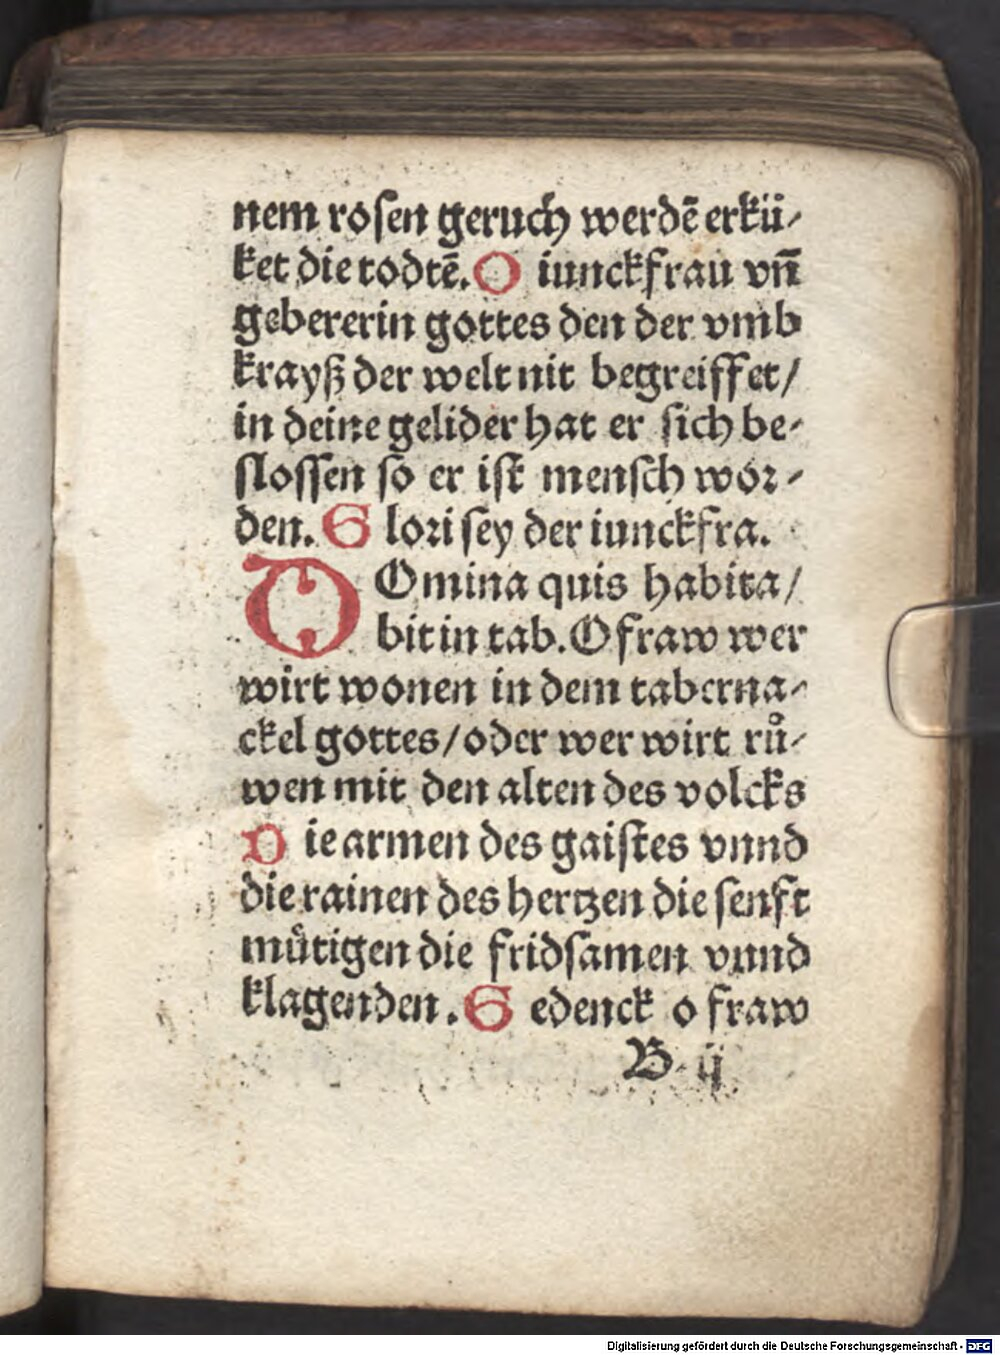 nem rosen geruch werdē erkü-
ket die todtē. O iunckfrau vn̄
gebererin gottes den der vmb
krayß der welt nit begreiffet/
in deine gelider hat er sich be-
slossen so er ist mensch wor-
den. Glori sey der iunckfra.
DOmina quis habita/
bit in tab. O fraw wer
wirt wonen in dem taberna-
ckel gottes/oder wer wirt rů-
wen mit den alten des volcks
Die armen des gaistes vnnd
die rainen des hertzen die senft
mütigen die fridsamen vnnd
klagenden. Gedenck o fraw
B ij
Digitalisierung gefördert durch die Deutsche Forschungsgemeinschaft - DFG